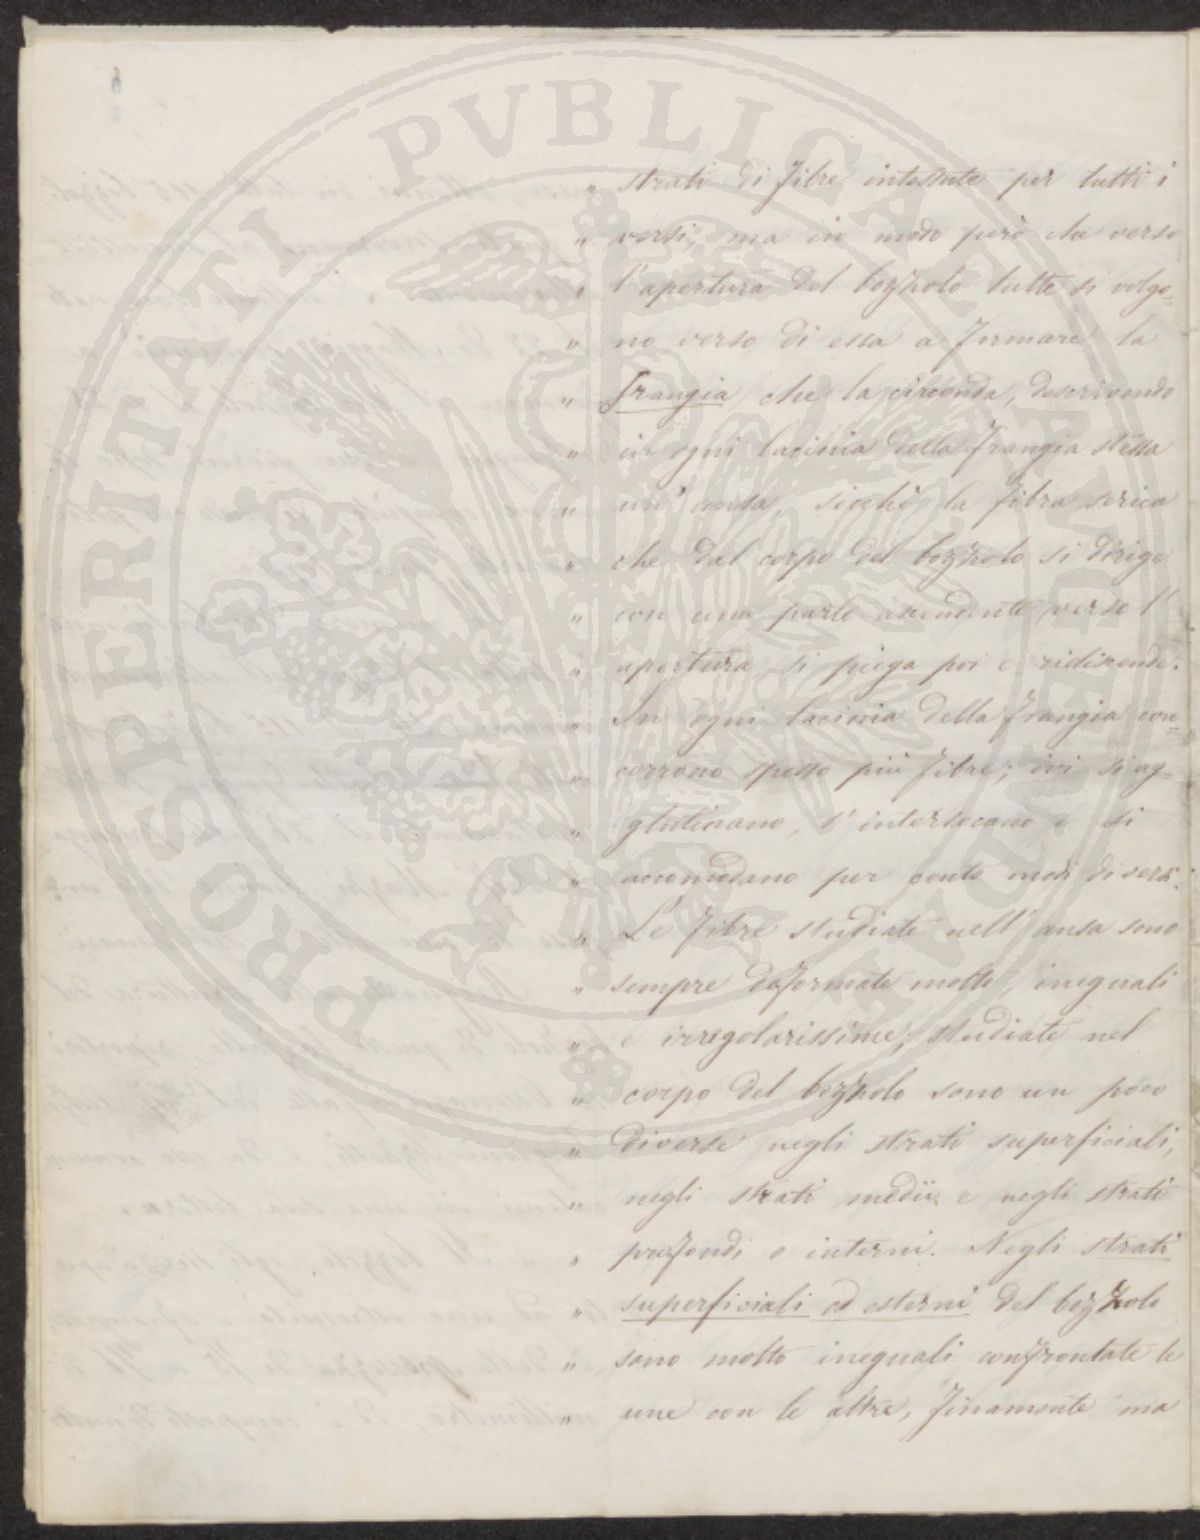 PROSPERITATI PVBLICAE AVGENDAE
„ strati di fibre intessute per tutti i
„ versi, ma in modo però che verso
„ l'apertura del bozzolo tutte si volgo=
„ no verso di essa a formare la
„ frangia che la circonda, descrivendo
„ in ogni lacinia della frangia stessa
„ un'ansa, sicchè la fibra serica
„ che dal corpo del bozzolo si dirige
„ con una parte ascendente verso l'
„ apertura si piega poi e ridiscende.
„ In ogni lacinia della frangia con=
„ corrono spesso più fibre; ivi si ag=
„ glutinano, s'intersecano e si
„ accomodano per cento modi diversi.
„ Le fibre studiate nell'ansa sono
„ sempre deformate molto, ineguali
„ e irregolarissime; studiate nel
„ corpo del bozzolo sono un poco
„ diverse negli strati superficiali,
„ negli strati medii e negli strati
„ profondi o interni. Negli strati
„ superficiali ed esterni del bozzolo
„ sono molto ineguali confrontate le
„ une con le altre, finamente ma